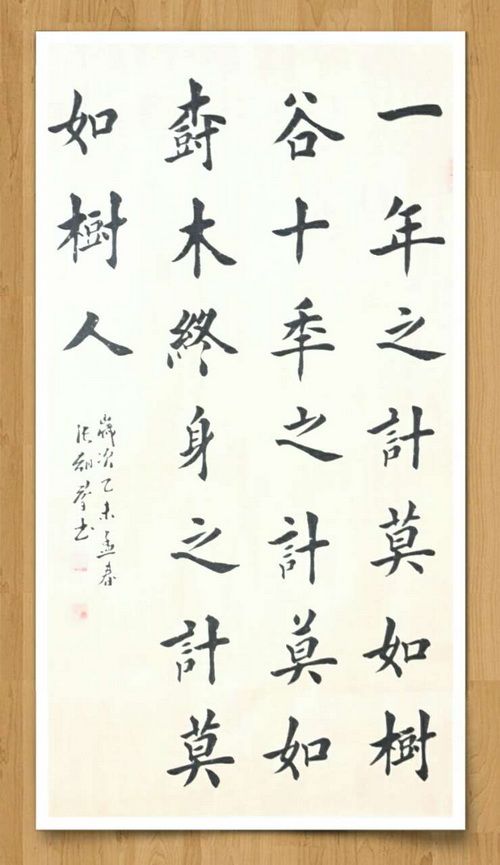 一年之計莫如樹
谷十秊之計莫如
樹木終身之計莫
如樹人
歲次乙未孟春
张書